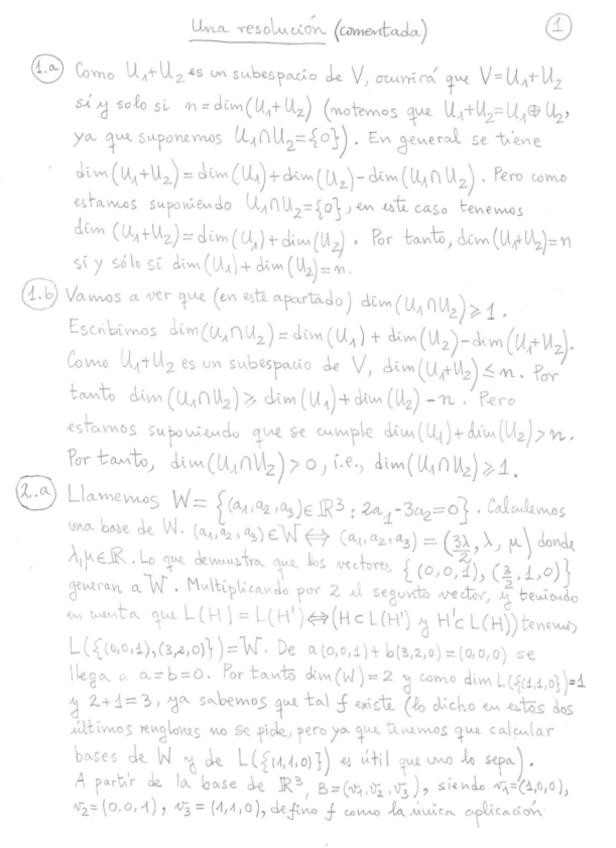 Una resolución (comentada) 1
1.a Como U₁+U₂ es un subespacio de V, ocurrirá que V=U₁+U₂
si y solo si n=dim(U₁+U₂) (notemos que U₁+U₂=U₁⊕U₂,
ya que suponemos U₁∩U₂={0}). En general se tiene
dim(U₁+U₂)=dim(U₁)+dim(U₂)-dim(U₁∩U₂). Pero como
estamos suponiendo U₁∩U₂={0}, en este caso tenemos
dim(U₁+U₂)=dim(U₁)+dim(U₂). Por tanto, dim(U₁+U₂)=n
si y sólo si dim(U₁)+dim(U₂)=n.
1.b Vamos a ver que (en este apartado) dim(U₁∩U₂)⩾1.
Escribimos dim(U₁∩U₂)=dim(U₁)+dim(U₂)-dim(U₁+U₂).
Como U₁+U₂ es un subespacio de V, dim(U₁+U₂)≤n. Por
tanto dim(U₁∩U₂)⩾dim(U₁)+dim(U₂)-n. Pero
estamos suponiendo que se cumple dim(U₁)+dim(U₂)>n.
Por tanto, dim(U₁∩U₂)>0, i.e., dim(U₁∩U₂)⩾1.
2.a Llamemos W={(a₁,a₂,a₃)∈ℝ³: 2a₁-3a₂=0}. Calculemos
una base de W. (a₁,a₂,a₃)∈W⇔(a₁,a₂,a₃)=(3λ/2,λ,μ) donde
λ,μ∈ℝ. Lo que demuestra que los vectores {(0,0,1),(3/2,1,0)}
generan a W. Multiplicando por 2 el segundo vector, y teniendo
en cuenta que L(H)=L(H')⇔(H⊂L(H') y H'⊂L(H)) tenemos
L({(0,0,1),(3,2,0)})=W. De a(0,0,1)+b(3,2,0)=(0,0,0) se
llega a a=b=0. Por tanto dim(W)=2 y como dim L({(1,1,0)})=1
y 2+1=3, ya sabemos que tal f existe (lo dicho en estos dos
últimos renglones no se pide, pero ya que tenemos que calcular
bases de W y de L({(1,1,0)}) es útil que uno lo sepa).
A partir de la base de ℝ³, B=(v₁,v₂,v₃), siendo v₁=(1,0,0),
v₂=(0,0,1), v₃=(1,1,0), defino f como la única aplicación